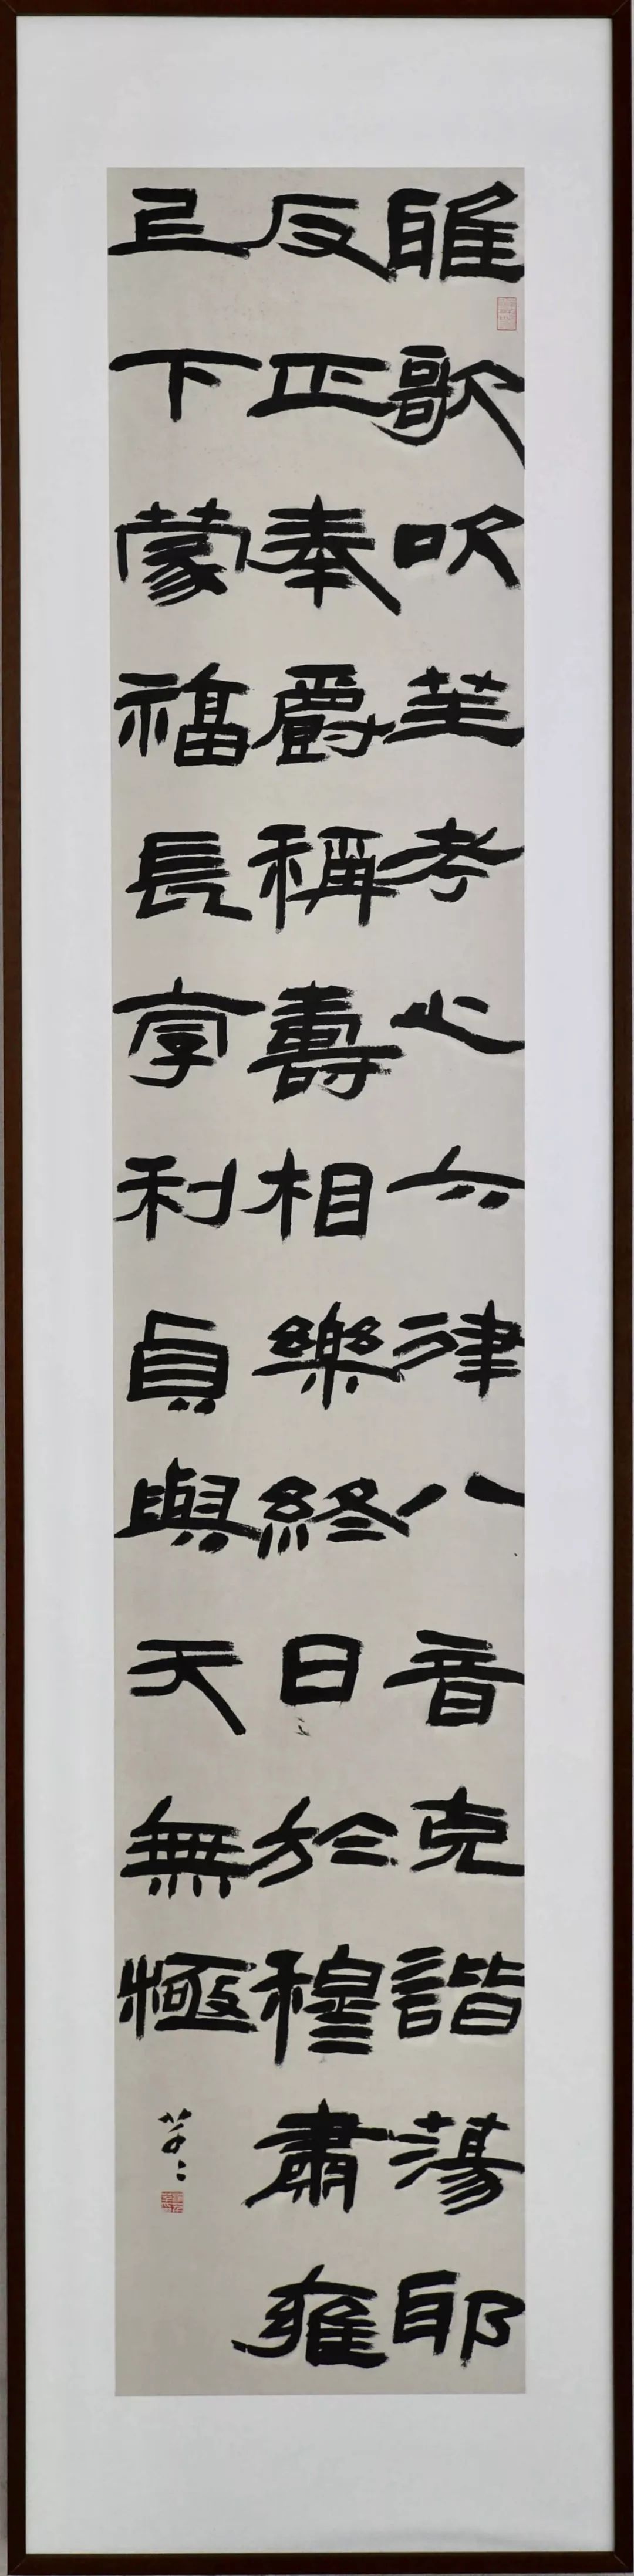 雅歌吹笙考之六律八音克諧蕩耶
反正奉爵稱壽相樂終日於穆肅雍
上下蒙福長享利貞與天無極